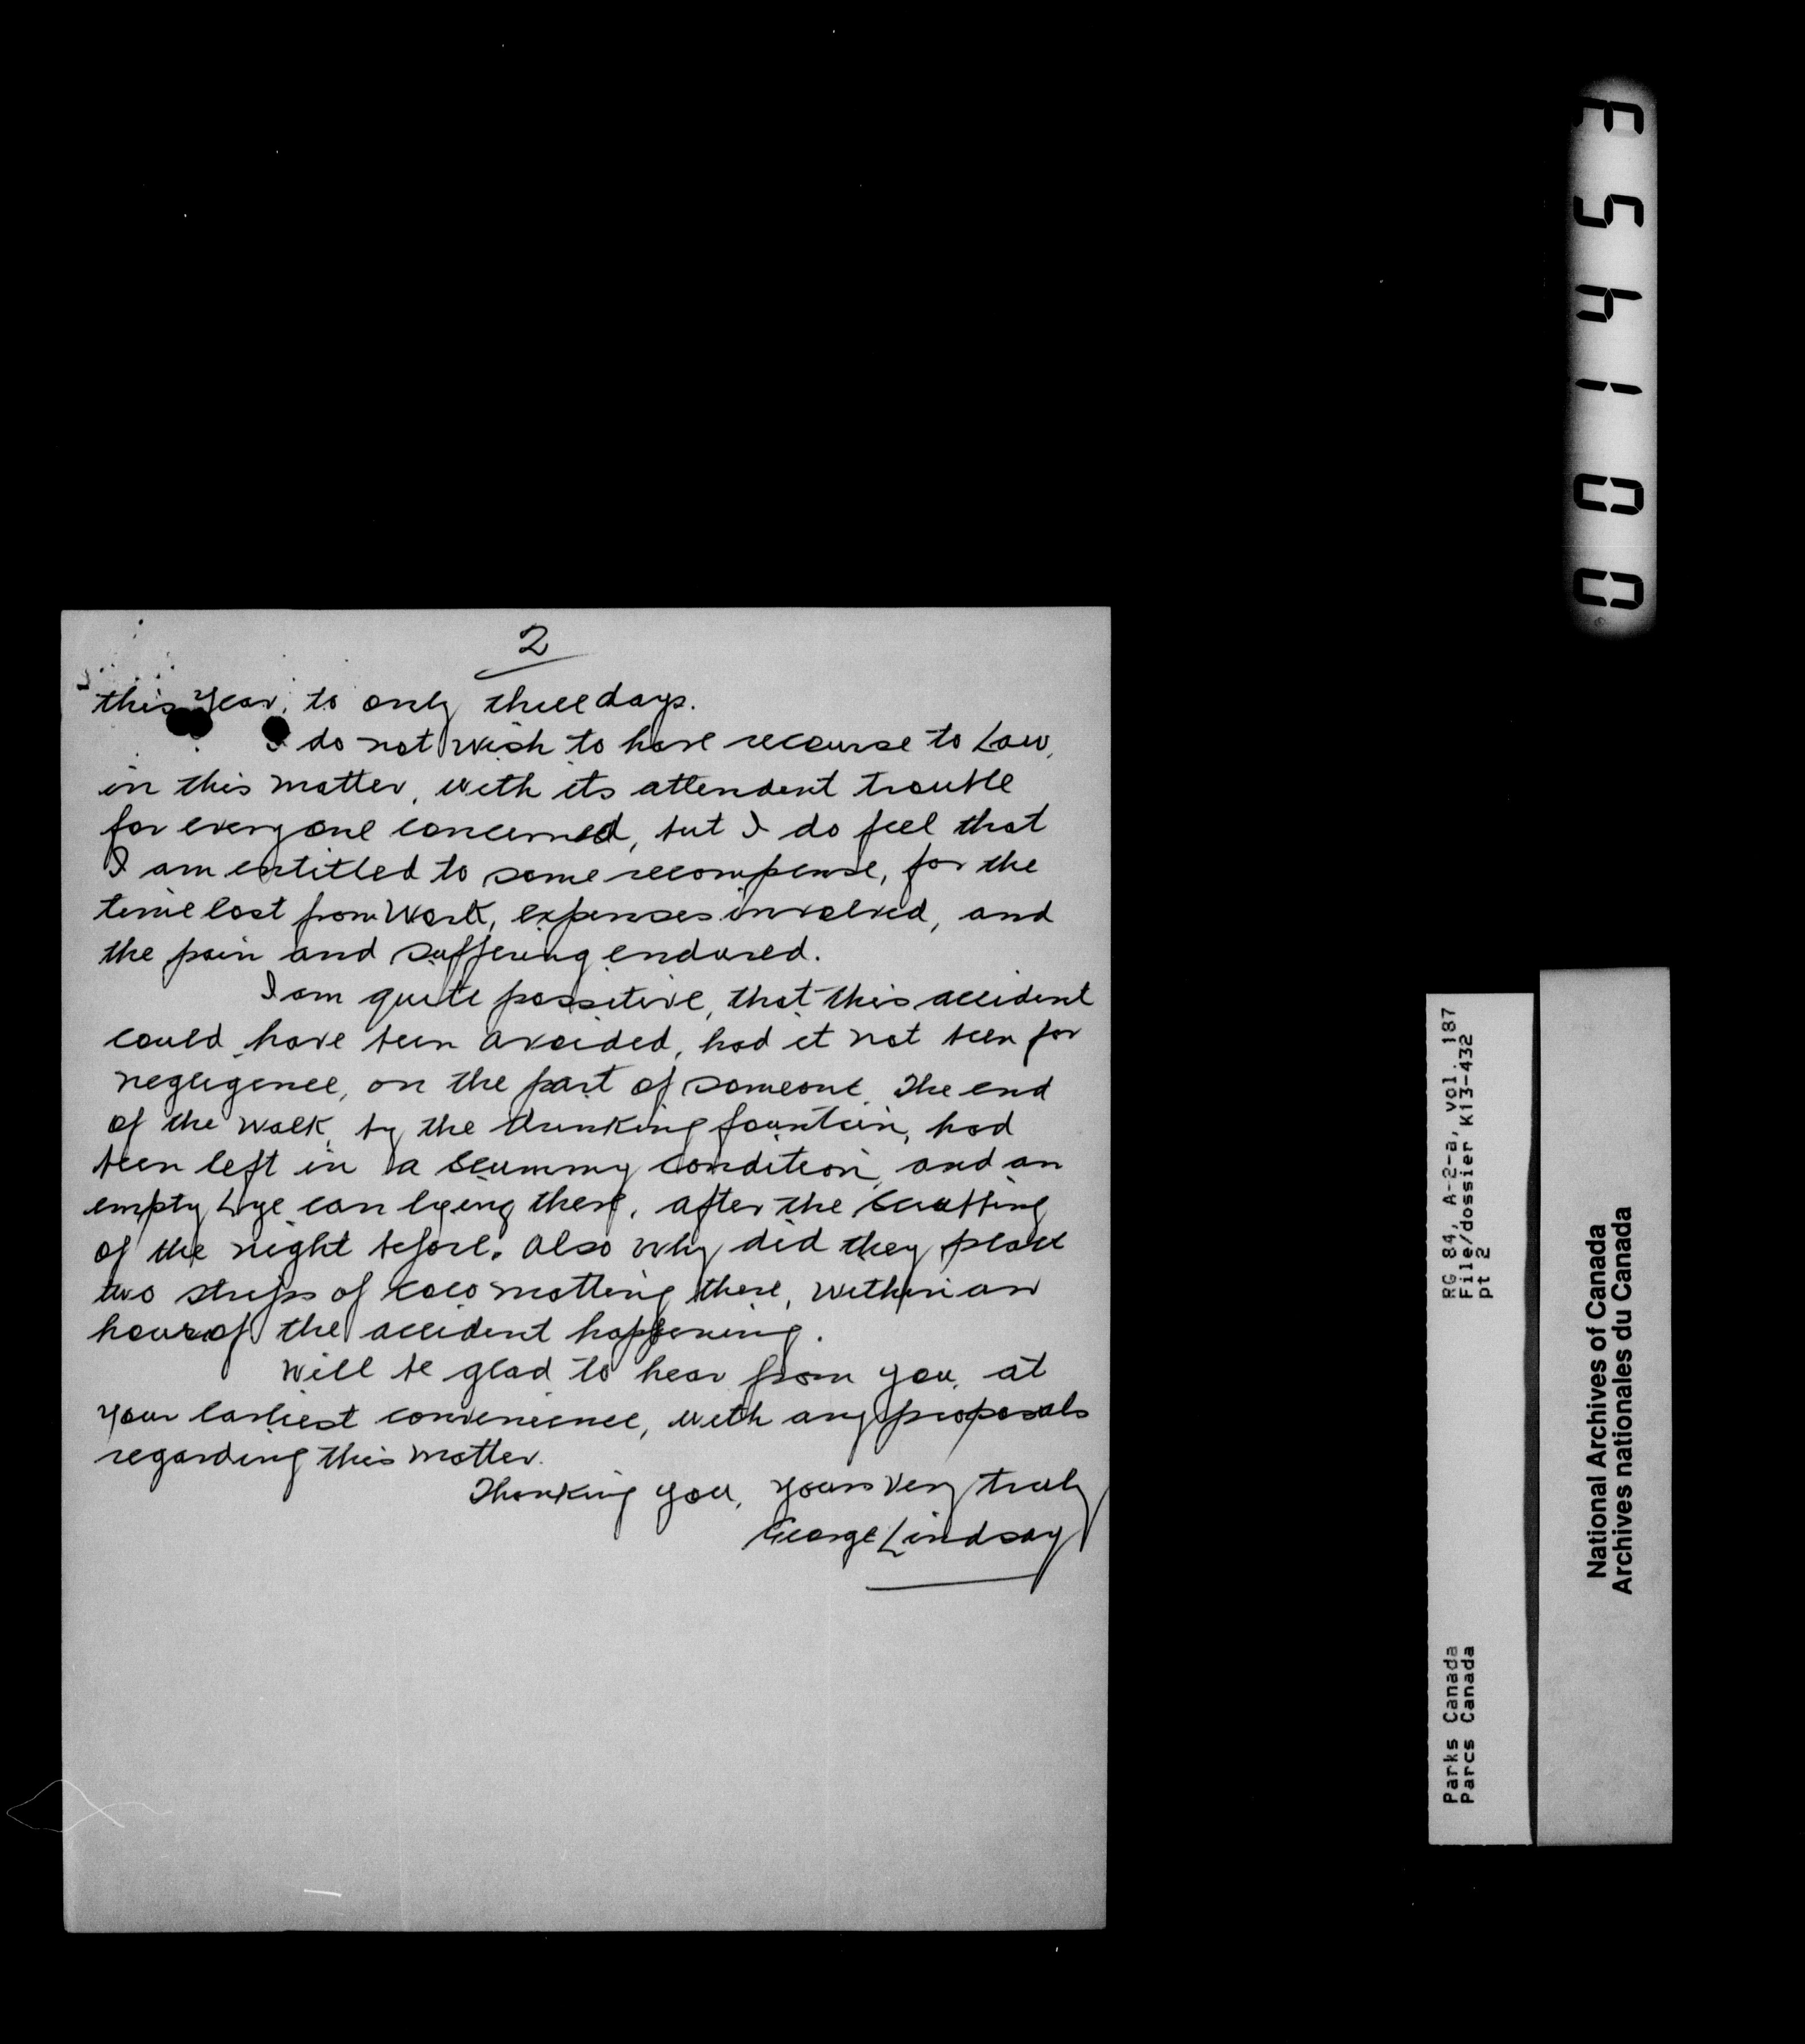 2
this year, to only three days.
I do not wish to have recourse to Law,
in this matter, with its attendent trouble
for everyone concerned, but I do feel that
I am entitled to some recompense, for the
time lost from Work, expenses involved, and
the pain and suffering endured.
I am quite possitive, that this accident
could have been avoided, had it not been for
negligence, on the part of someone. The end
of the walk, by the drinking fountain, had
been left in a scummy condition, and an
empty Lye can lyeing there, after the scrubbing
of the night before. Also why did they place
two strips of coco matting there, within an
hour of the accident happening.
Will be glad to hear from you, at
your earliest convenience, with any proposals
regarding this matter.
Thanking you, yours very truly
George Lindsay
RG 84, A-2-a, vol. 187
File/dossier K13-432
pt 2
Parks Canada
Parcs Canada
National Archives of Canada
Archives nationales du Canada